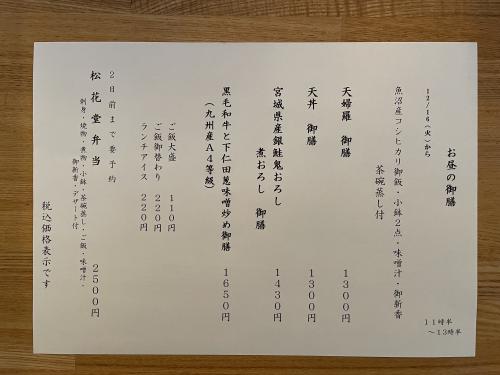 お昼の御膳
11時半
～13時半
12/16（火）から
魚沼産コシヒカリ御飯・小鉢2点・味噌汁・御新香
茶碗蒸し付
天婦羅 御膳 1300円
天丼 御膳 1300円
宮城県産銀鮭鬼おろし
煮おろし 御膳 1430円
黒毛和牛と下仁田葱味噌炒め御膳 1650円
（九州産A4等級）
ご飯大盛 110円
ご飯御替わり 220円
ランチアイス 220円
2日前まで要予約
松花堂弁当 2500円
刺身・焼物・煮物・小鉢・茶碗蒸し・ご飯・味噌汁・
御新香・デザート付
税込価格表示です